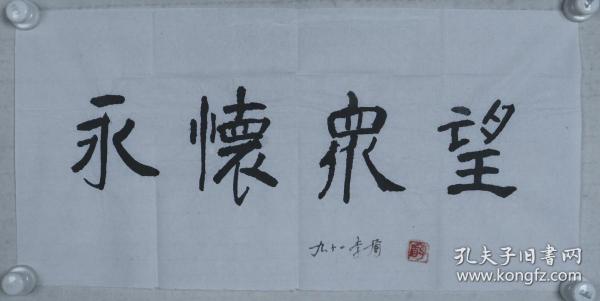 永懷眾望
九十一李
孔夫子旧书网
www.kongfz.com